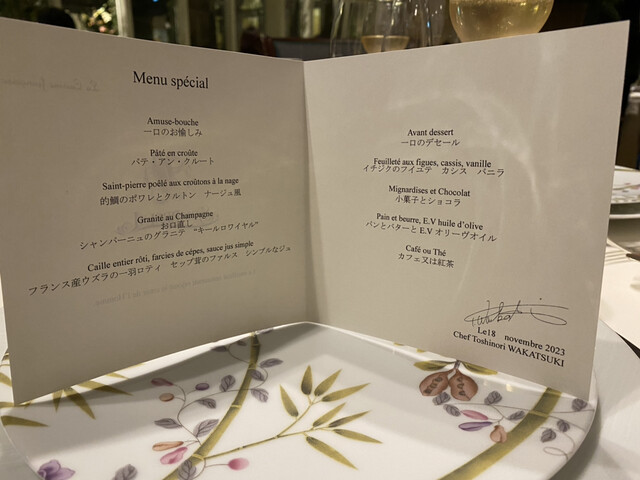 Menu spécial
Amuse-bouche
一口のお愉しみ
Pâté en croûte
パテ・アン・クルート
Saint-pierre poêlé aux croûtons à la nage
的鯛のポワレとクルトン　ナージュ風
Granité au Champagne
お口直し
シャンパーニュのグラニテ　“キールロワイヤル”
Caille entier rôti, farcies de cépes, sauce jus simple
フランス産ウズラの一羽ロティ　セップ茸のファルス　シンプルなジュ
Avant dessert
一口のデセール
Feuilleté aux figues, cassis, vanille
イチジクのフイユテ　カシス　バニラ
Mignardises et Chocolat
小菓子とショコラ
Pain et beurre, E.V huile d'olive
パンとバターと E.V オリーヴオイル
Café ou Thé
カフェ又は紅茶
Le18 novembre 2023
Chef Toshinori WAKATSUKI